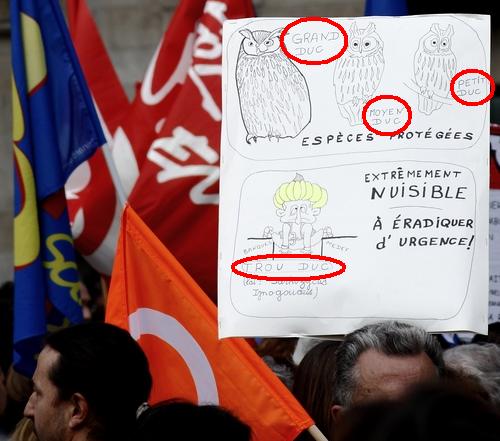 GRAND
DUC
MOYEN
DUC
PETIT
DUC
ESPÈCES PROTÉGÉES
EXTRÊMEMENT
NUISIBLE
À ÉRADIQUER
d'URGENCE!
BANQUE
MEDEF
TROU DUC
Iznogoudis)